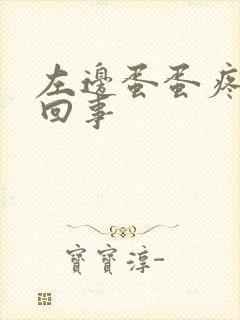 左邊蛋蛋疼
回事
寶寶淳-